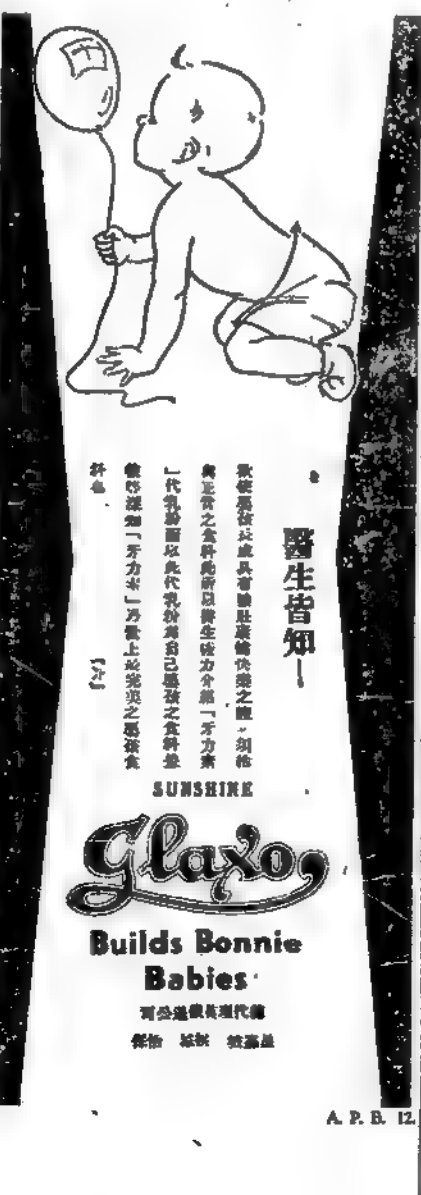 醫生皆知—
欲使嬰孩長成具有強壯康健快樂之體須給
與正當之食料此所以醫生皆力介紹「牙力素
」代乳粉而以此代乳粉為自己嬰孩之食料並
深知「牙力素」乃世上最完美之嬰孩食
料也
SUNSHINE
Glaxo
Builds Bonnie
Babies
總代理
星嘉坡 怡保
A. P. B. 12.